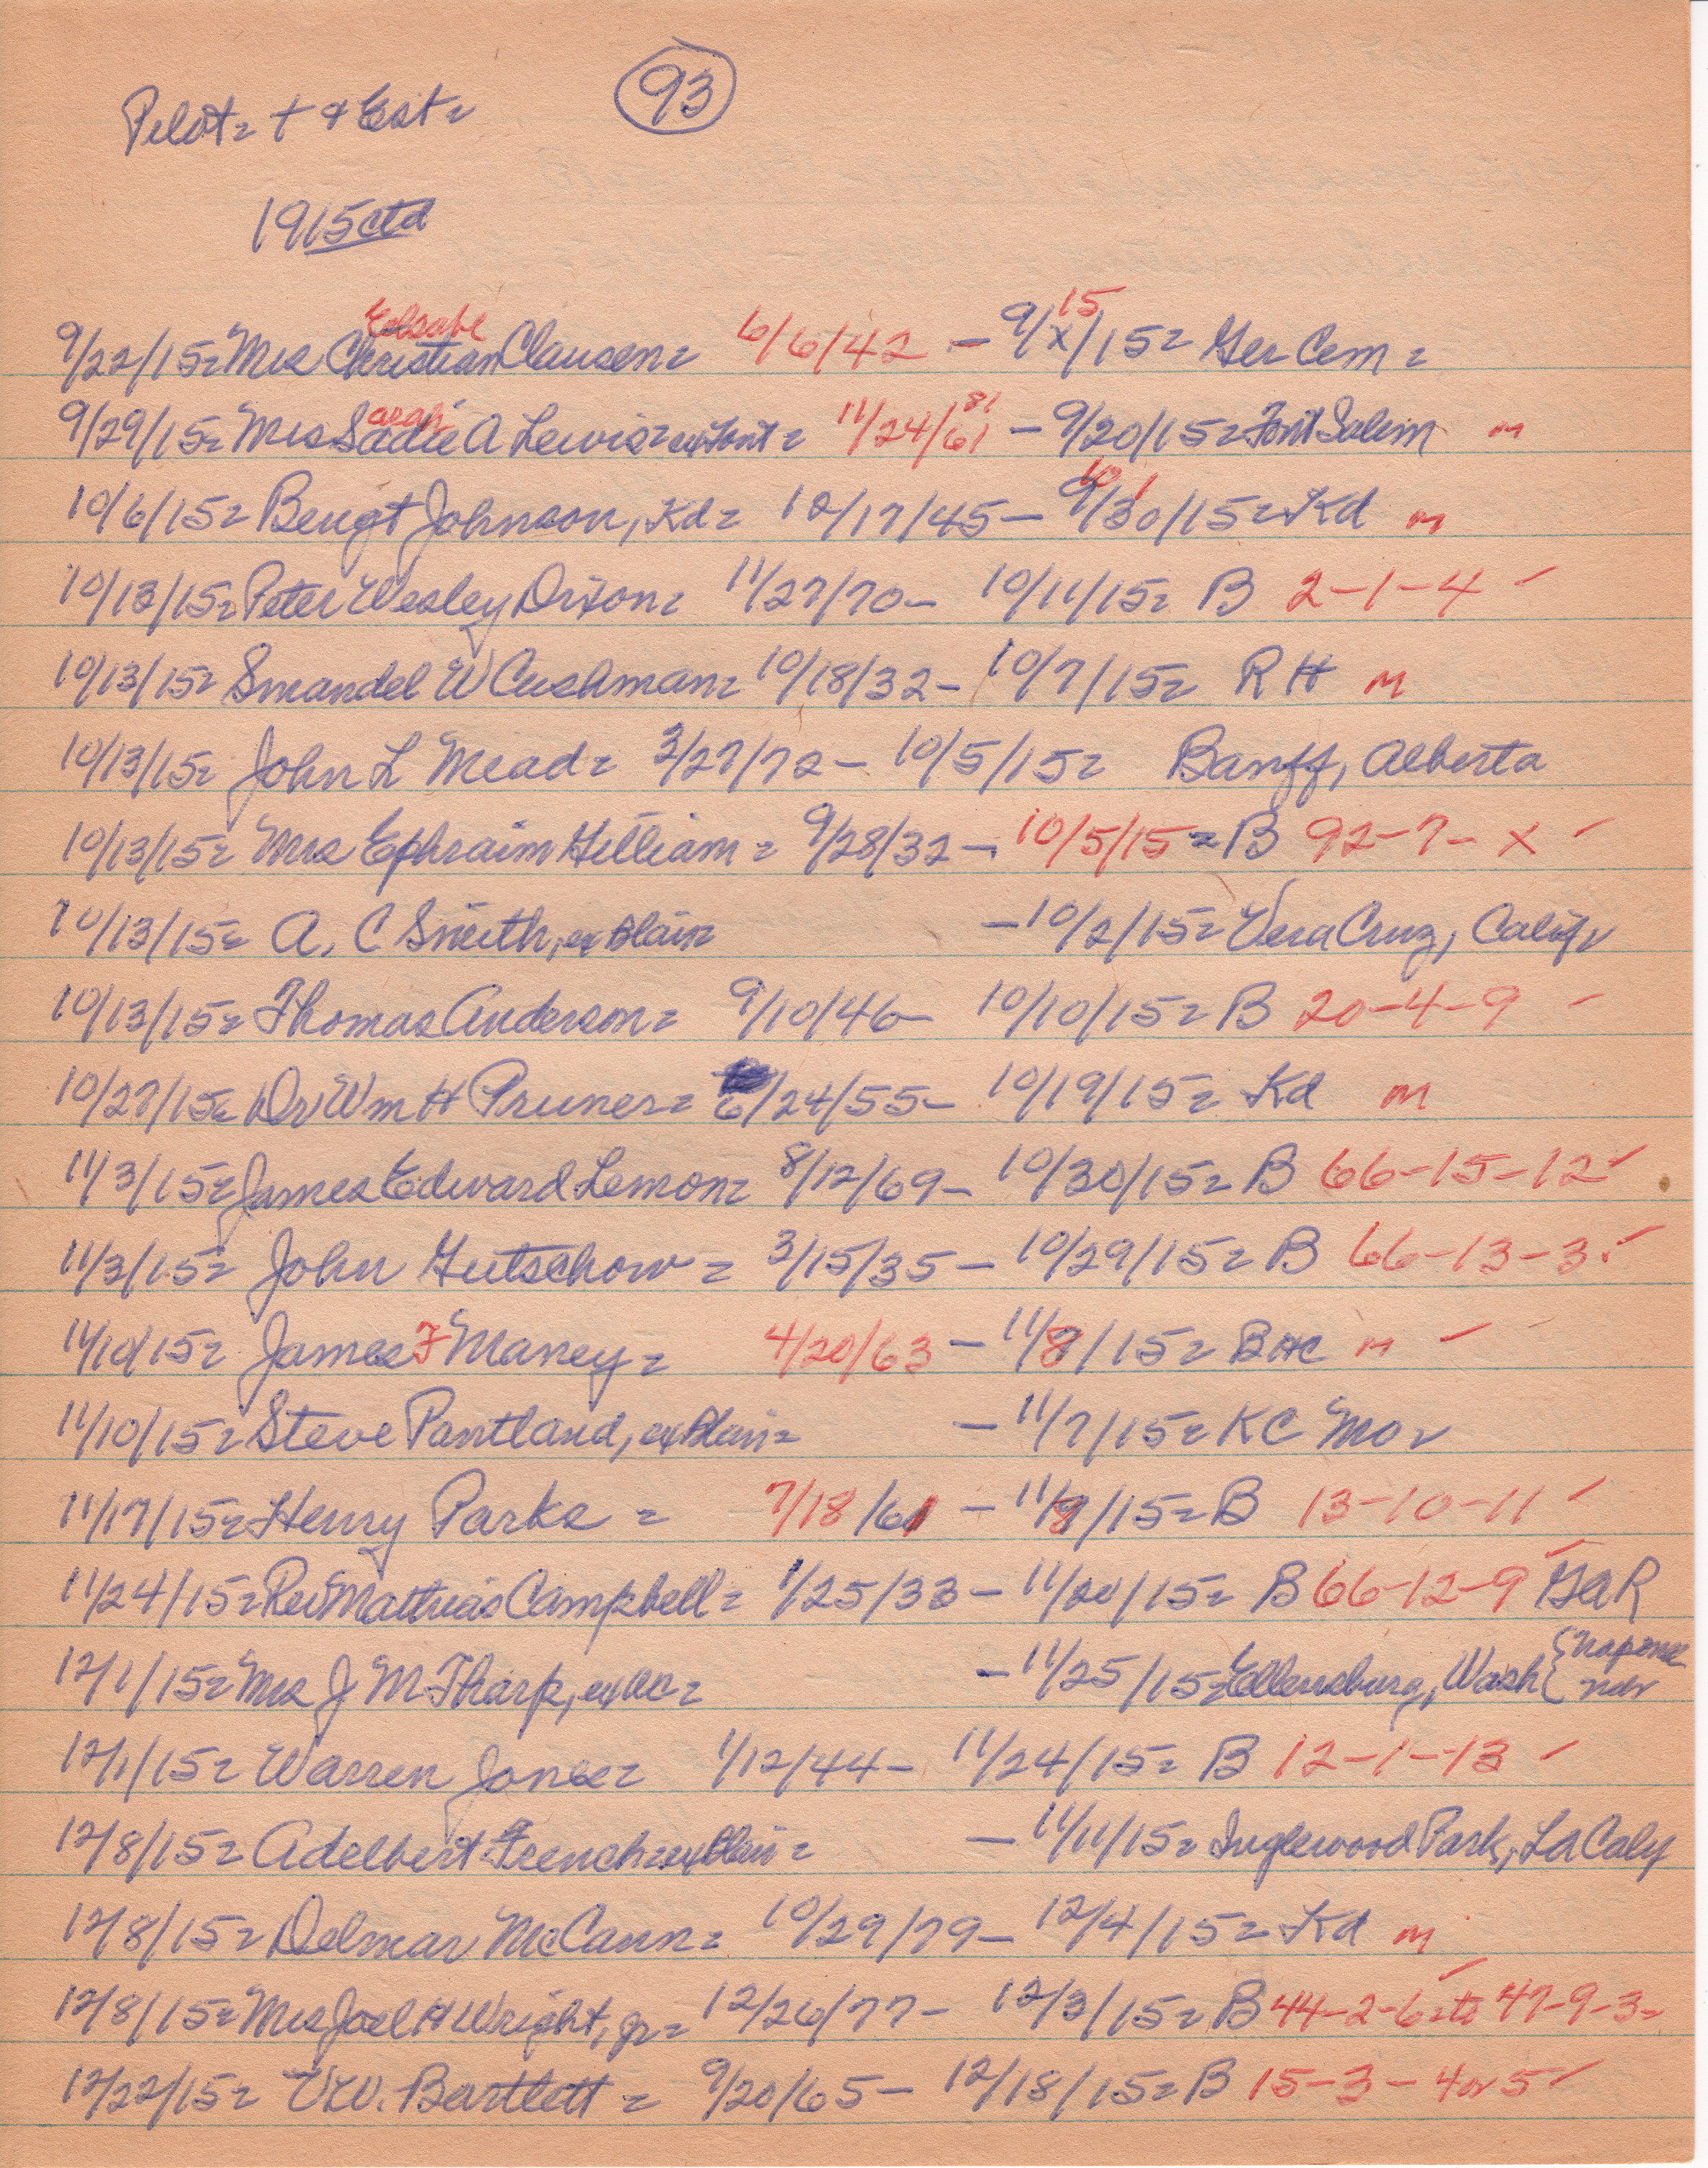 93
Pilot= + & Ent=
1915 ctd
Elsabe 15
9/22/15= Mrs Christian Clausen= 6/6/42 - 9/x/15= Ger Cem=
arah 81
9/29/15= Mrs Sadie A Lewis= ex Font= 11/24/61 - 9/20/15= Font Salem m
10 1
10/6/15= Bengt Johnson, Kd= 10/17/45 - 9/30/15= Kd m
10/13/15= Peter Wesley Dixon= 11/27/70- 10/11/15= B 2-1-4 ✓
10/13/15= Smandel W Cushman= 10/18/32- 10/7/15= R H m
10/13/15= John L Mead= 3/27/72- 10/5/15= Banff, Alberta
10/13/15= Mrs Ephraim Gilliam= 9/28/32- 10/5/15= B 92-7- X ✓
10/13/15= A. C Smith, ex Blair= -10/2/15= Vera Cruz, Calif=
10/13/15= Thomas Anderson= 9/10/46- 10/10/15= B 20-4-9 -
10/27/15= Dr Wm H Pruner= 6/24/55- 10/19/15= Kd m
11/3/15= James Edward Lemon= 8/12/69- 10/30/15= B 66-15-12 ✓
11/3/15= John Gutschow= 3/15/35- 10/29/15= B 66-13-3 ✓
11/10/15= James F Maney= 4/20/63 - 11/8/15= BHC m ✓
11/10/15= Steve Pantland, ex Blair= - 11/7/15= KC Mo=
11/17/15= Henry Parks= 7/18/61 - 11/8/15= B 13-10-11 ✓
11/24/15= Rev Matthias Campbell= 1/25/33- 11/20/15= B 66-12-9 ✓ GAR
12/1/15= Mrs J M Tharp, ex WC= -11/25/15= Ellensburg, Wash {
12/1/15= Warren Jones= 1/12/44- 11/24/15= B 12-1-13 ✓
12/8/15= Adelbert French= ex Blair= - 11/11/15= Inglewood Park, LA Calif
12/8/15= Delmar McCann= 10/29/79- 12/4/15= Kd m
12/8/15= Mrs Joel H Wright, jr= 12/26/77- 12/3/15= B 44-2-6= to 47-9-3= ✓
12/22/15= V W. Bartlett= 9/20/65- 12/18/15= B 15-3-4 or 5 ✓